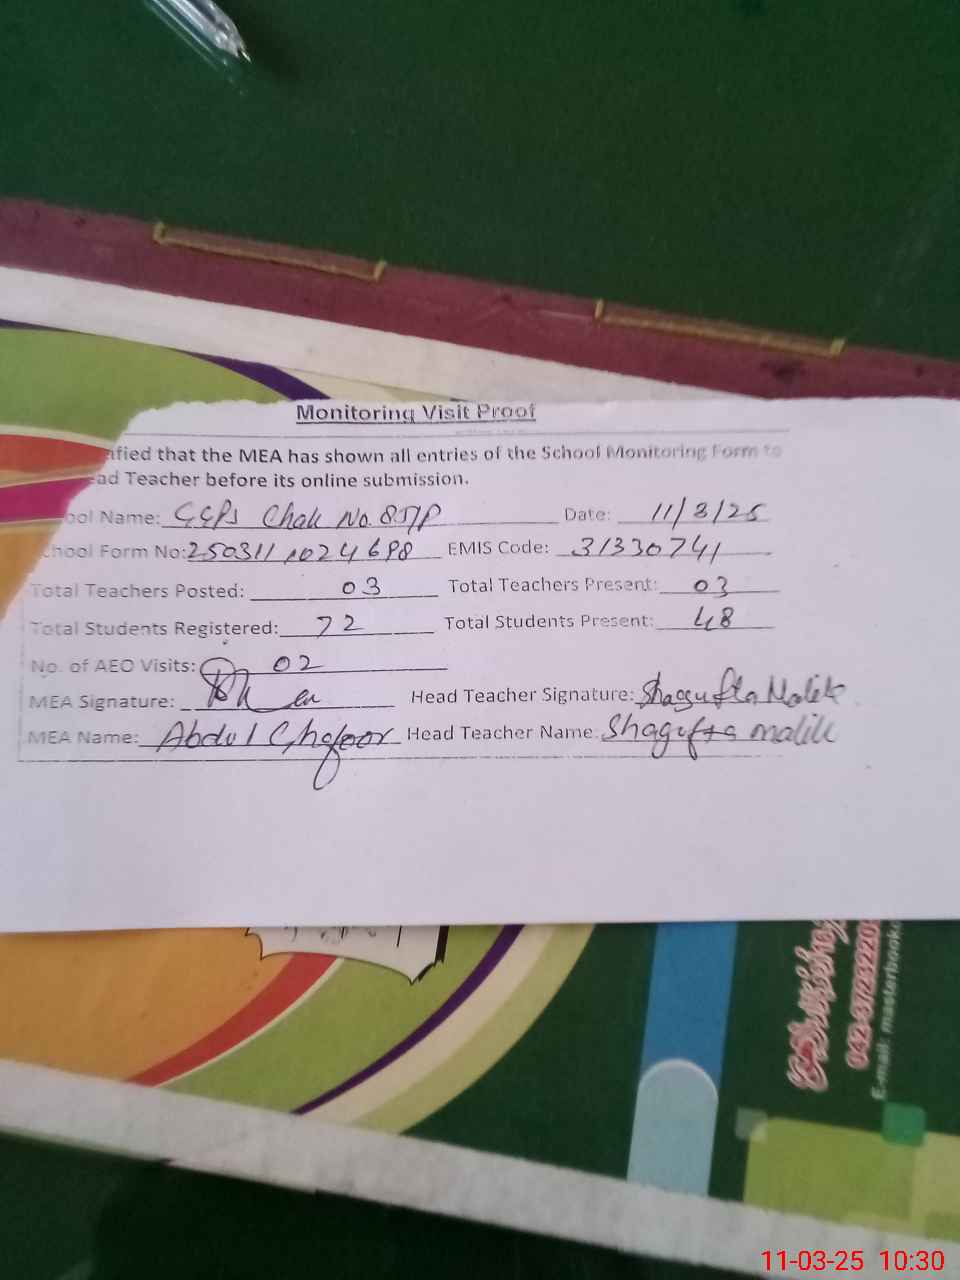 Monitoring Visit Proof
ified that the MEA has shown all entries of the School Monitoring Form to
ead Teacher before its online submission.
ool Name: GGPS Chak No. 85/P Date: 11/3/25
chool Form No: EMIS Code: 31330741
Total Teachers Posted: 03 Total Teachers Present: 03
Total Students Registered: 72 Total Students Present: 48
No. of AEO Visits: 02
MEA Signature: Head Teacher Signature: Shagufta Malik
MEA Name: Abdul Ghafoor Head Teacher Name: Shagufta malik
E-mail: masterbooks
11-03-25 10:30